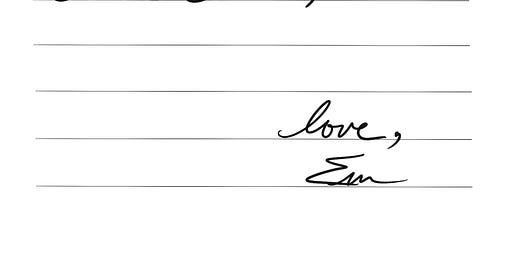 love,
Em